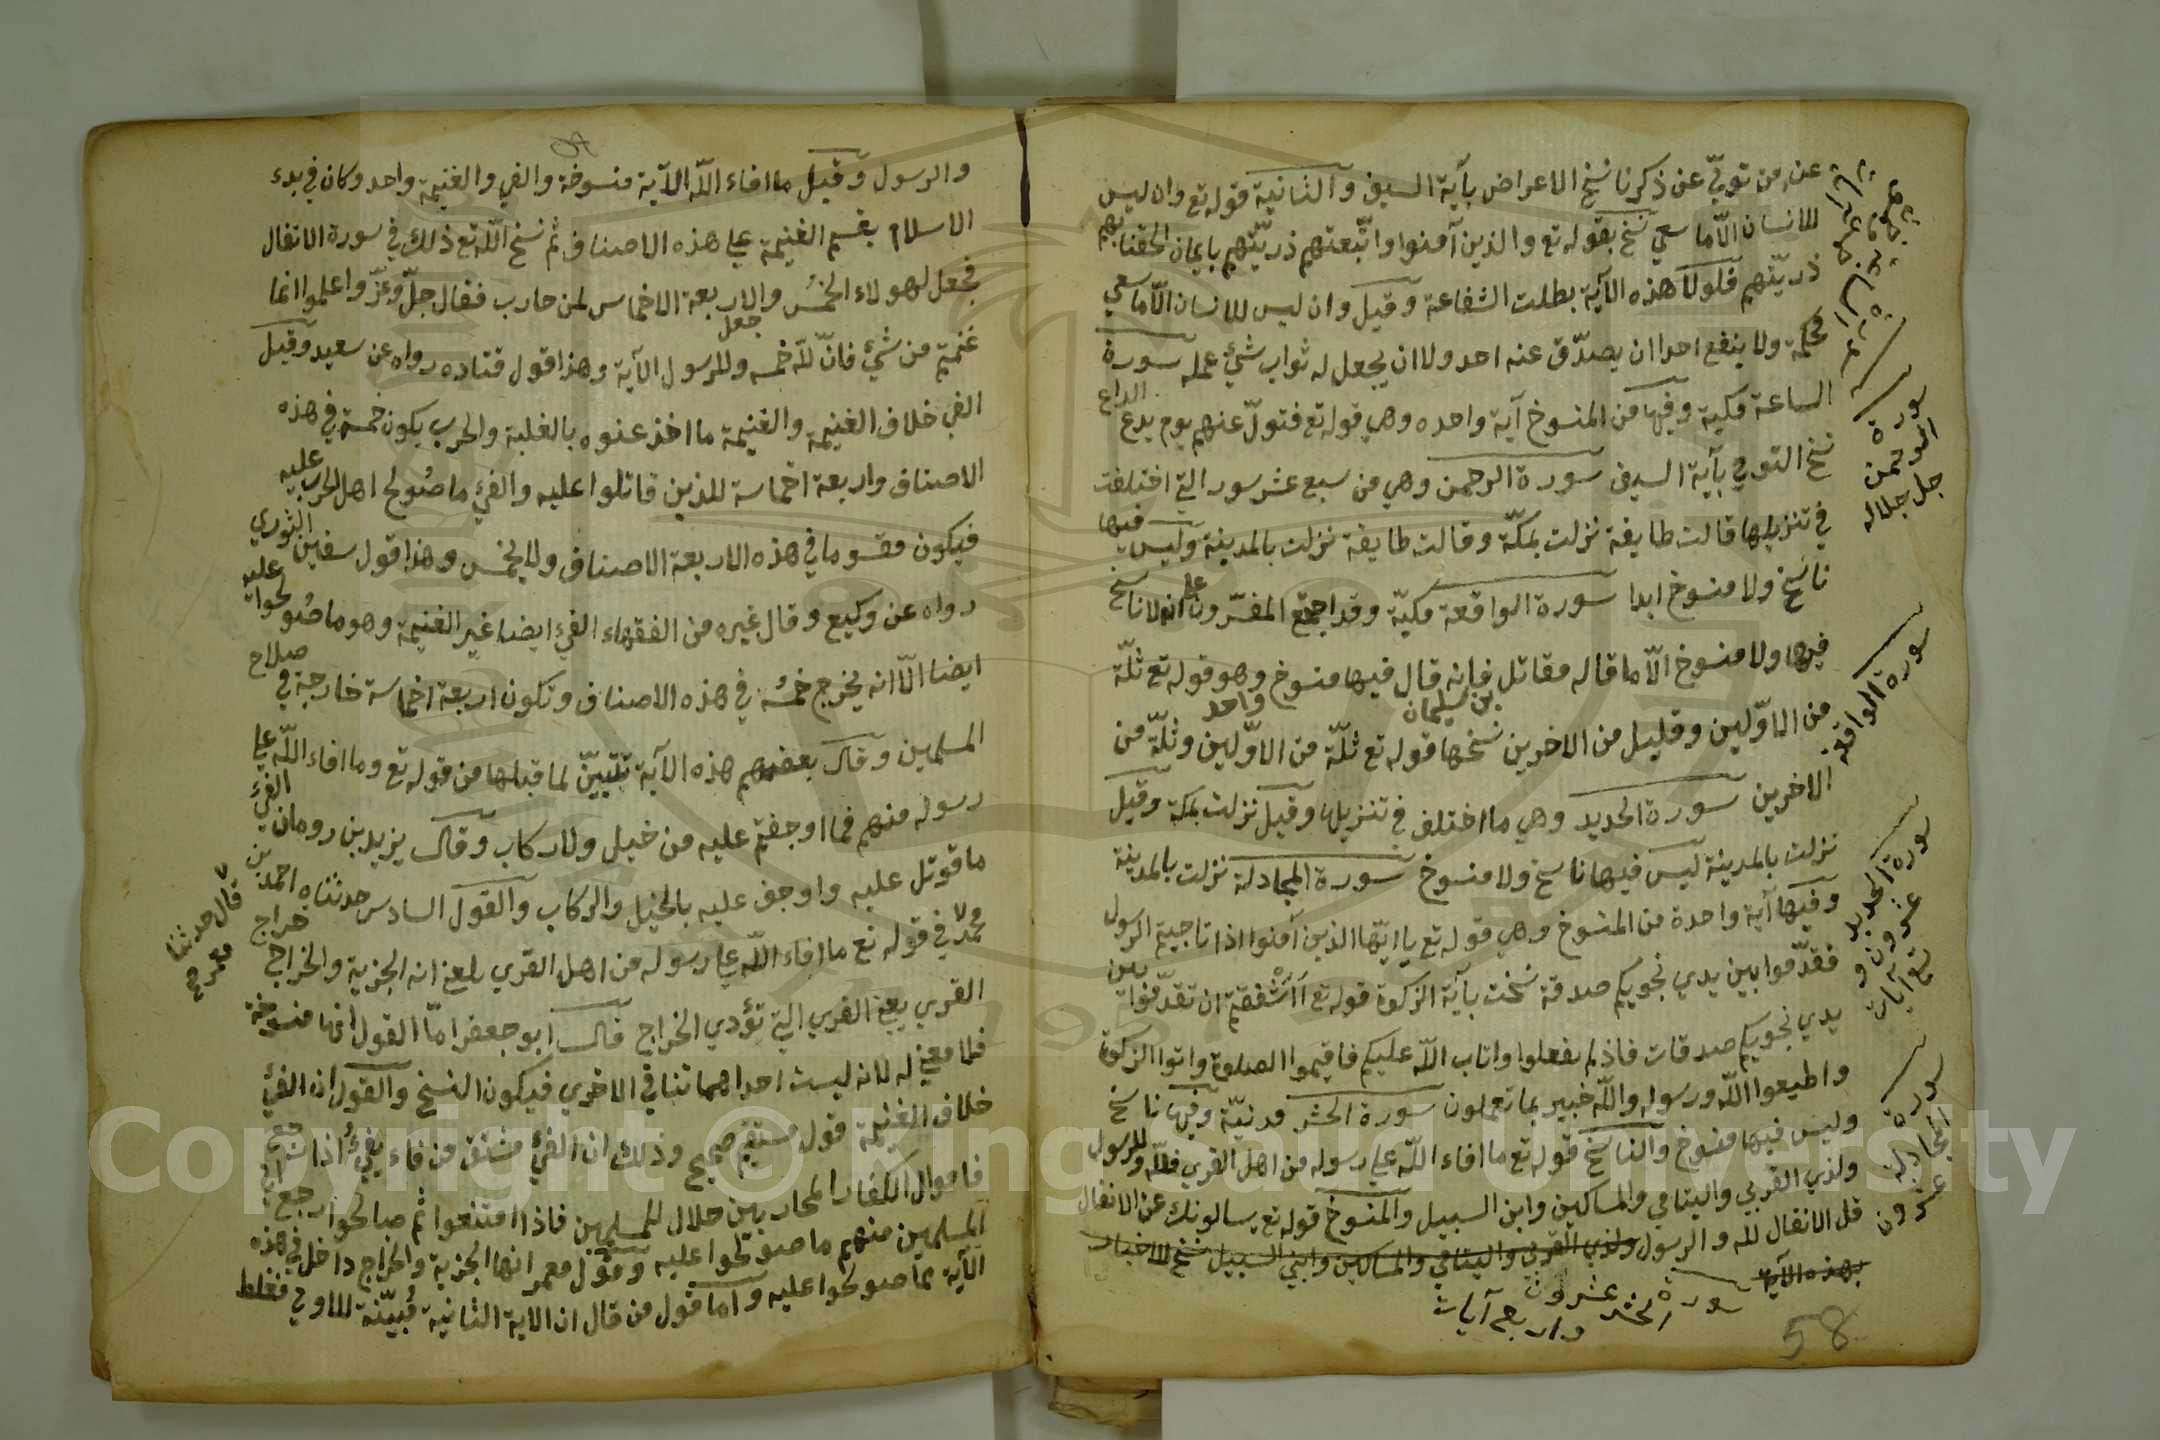 عن من تولّى عن ذكرنا نسخ الاعراض بآية السيف والثانية قوله تع وان ليس
للانسان الّا ما سعي نسخ بقوله تع والذين آمنوا واتّبعتهم ذريّتهم بايمان الحقنا بهم
ذريّتهم فلولا هذه الآية بطلت الشفاعة وقيل وان ليس للانسان الّا ما سعي
محكمة ولا ينفع احدا ان يصدّق عنه احد ولا ان يجعل له ثواب شئ عمله سورة
الساعة مكية وفيها من المنسوخ آية واحده وهي قوله تع فتولّ عنهم يوم يدع الداع
نسخ التولي بآية السيف سورة الرحمن وهي من سبع عشر سور التي اختلفت
في تنزيلها قالت طايفة نزلت بمكّة وقالت طايفة نزلت بالمدينة وليس فيها
ناسخ ولا منسوخ ابدا سورة الواقعة مكيّة وقد اجمع المفسّرون على انه لا ناسخ
فيها ولا منسوخ الّا ما قاله مقاتل بن سليمان فانه قال فيها منسوخ واحد وهو قوله تع ثلّة
من الاوّلين وقليل من الاخرين نسخها قوله تع ثلّة من الاوّلين وثلّة من
الاخرين سورة الحديد وهي ما اختلف في تنزيلها وقيل نزلت بمكة وقيل
نزلت بالمدينة ليس فيها ناسخ ولا منسوخ سورة المجادلة نزلت بالمدينة
وفيها آية واحدة من المنسوخ وهي قوله تع يا ايّها الذين آمنوا اذا ناجيتم الرسول
فقدّموا بين يدي نجويكم صدقة نسخت بآية الزكوة قوله تع أأشفقتم ان تقدّموا بين
يدي نجويكم صدقات فاذ لم تفعلوا وتاب اللّه عليكم فاقيموا الصلوة واتوا الزكوة
واطيعوا اللّه ورسوله واللّه خبير بما تعملون سورة الحشر مدنيّة وفيها ناسخ
وليس فيها منسوخ والناسخ قوله تع ما افاء اللّه على رسوله من اهل القري فللّه وللرسول
ولذي القربي واليتامي والمساكين وابن السبيل والمنسوخ قوله تع يسالونك عن الانفال
قل الانفال لله والرسول ولذي القربي واليتامي والمساكين وابن السبيل نسخ
بهذه الآية
سورة الحشر عشرون
واربع آيات
58
سورة
الرحمن
جل جلاله
سورة الواقعة
سورة الحديد
عشرون و
تسع آيات
سورة
المجادلة
عشرون
والرسول وقيل ما افاء اللّه الآية منسوخة والفي والغنيمة واحد وكان في بدء
الاسلام يقسم الغنيمة على هذه الاصناف ثم نسخ اللّه تع ذلك في سورة الانفال
فجعل لهولاء الخمس والاربعة الاخماس لمن حارب فقال جلّ وعزّ واعلموا انما
جعل
غنمتم من شئ فانّ للّه خمسه وللرسول الآية وهذا قول قتاده رواه عن سعيد وقيل
الفي خلاف الغنيمة والغنيمة ما اخذ عنوه بالغلبة والحرب يكون خمسة في هذه
الاصناف واربعة اخماسة للذين قاتلوا عليه والفئ ما صُولح اهل الحرب عليه
فيكون مقسوما في هذه الاربعة الاصناف ولا يخمس وهذا قول سفين الثوري
رواه عن وكيع وقال غيره من الفقهاء الفئ ايضا غير الغنيمة وهو ما صُولحوا عليه
ايضا الّا انه يخرج خمسُه في هذه الاصناف وتكون اربعة اخماسة خارجة في صلاح
المسلمين وقال بعضهم هذه الآية تبيّن لما قبلها من قوله تع وما افاء اللّه على
رسوله منهم فما اوجفتم عليه من خيل ولا ركاب وقال يزيد بن رومان الفئ
ما قوتل عليه واوجف عليه بالخيل والركاب والقول السادس حدثناه احمد بن
قال حدثنا
معمر
محمد في قوله تع ما افاء اللّه على رسوله من اهل القري بلغني انه الجزية والخراج خراج
القري يعني القري التي تؤدي الخراج قال ابو جعفر امّا القول انها منسوخة
فلا معني له لانه ليست احداهما تنافي الاخري فيكون النسخ والقول ان الفئ
خلاف الغنيمة قول مستقيم صحيح وذلك ان الفئ مشتق من فاء يفئُ اذا رجع
فاموال الكفار المحاربين حلال للمسلمين فاذا امتنعوا ثم صالحوا رجع الى
المسلمين منهم ما صولحوا عليه وقول معمر انها الجزية والخراج داخل في هذه
الآية مما صولحوا عليه واما قول من قال ان الاية الثانية مُبيّنة للاولي فغلط